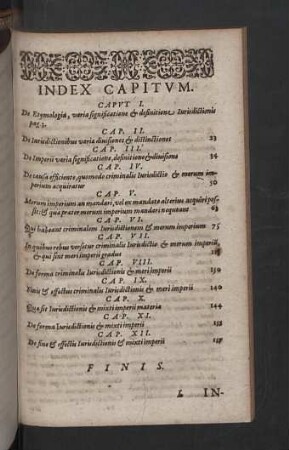 INDEX CAPITVM.
CAPVT I.
De Etymologia, varia significatione & definitione Iurisdictionis
pag. 3.
CAP. II.
De Iurisdictionibus varia diuisiones & distinctiones 23
CAP. III.
De Imperii varia significatione, definitione & diuisione 34
CAP. IV.
De causa efficiente, quomodo criminalis Iurisdictio & merum im-
perium acquiratur 50
CAP. V.
Merum imperium an mandari, vel ex mandato alterius acquiri pos-
sit: & qua prater merum imperium mandari nequeant 63
CAP. VI.
Qui habeant criminalem Iurisdictionem & merum imperium 75
CAP. VII.
In quibus rebus versetur criminalis Iurisdictio & merum imperiū,
& qui sint meri imperii gradus
CAP. VIII.
De forma criminalis Iurisdictionis & meri imperii 130
CAP. IX.
Finis & effectus criminalis Iurisdictionis & meri imperii 140
CAP. X.
Qua sit Iurisdictionis & mixti imperii materia 144
CAP. XI.
De forma Iurisdictionis & mixti imperii
CAP. XII.
De fine & effectu Iurisdictionis & mixti imperii
FINIS.
IN-